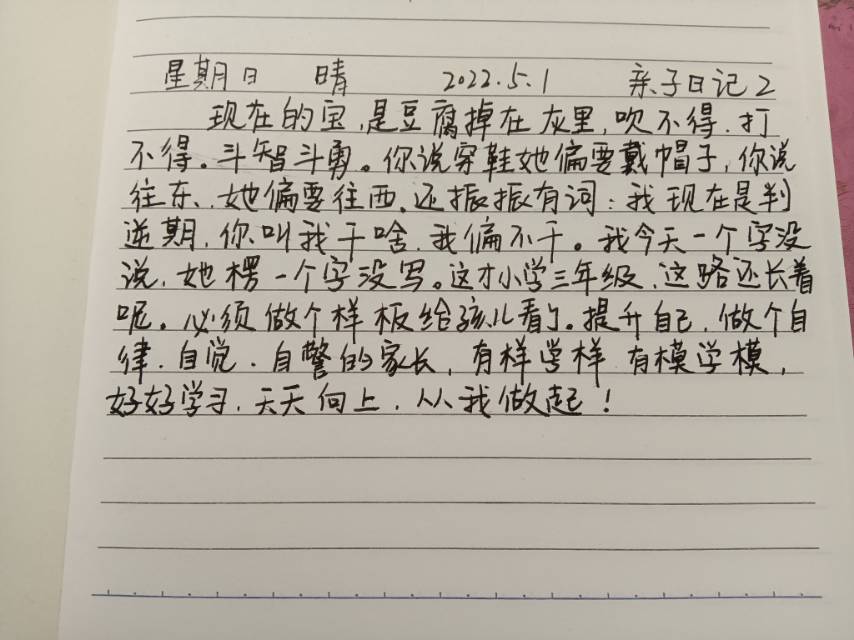 星期日 晴 2022.5.1 亲子日记2
现在的宝,是豆腐掉在灰里,吹不得.打
不得。斗智斗勇。你说穿鞋她偏要戴帽子,你说
往东,她偏要往西。还振振有词:我现在是判
逆期,你叫我干啥,我偏不干。我今天一个字没
说,她楞一个字没写。这才小学三年级,这路还长着
呢。必须做个样板给孩儿看了。提升自己,做个自
律.自觉.自警的家长,有样学样 有模学模,
好好学习,天天向上,从我做起!